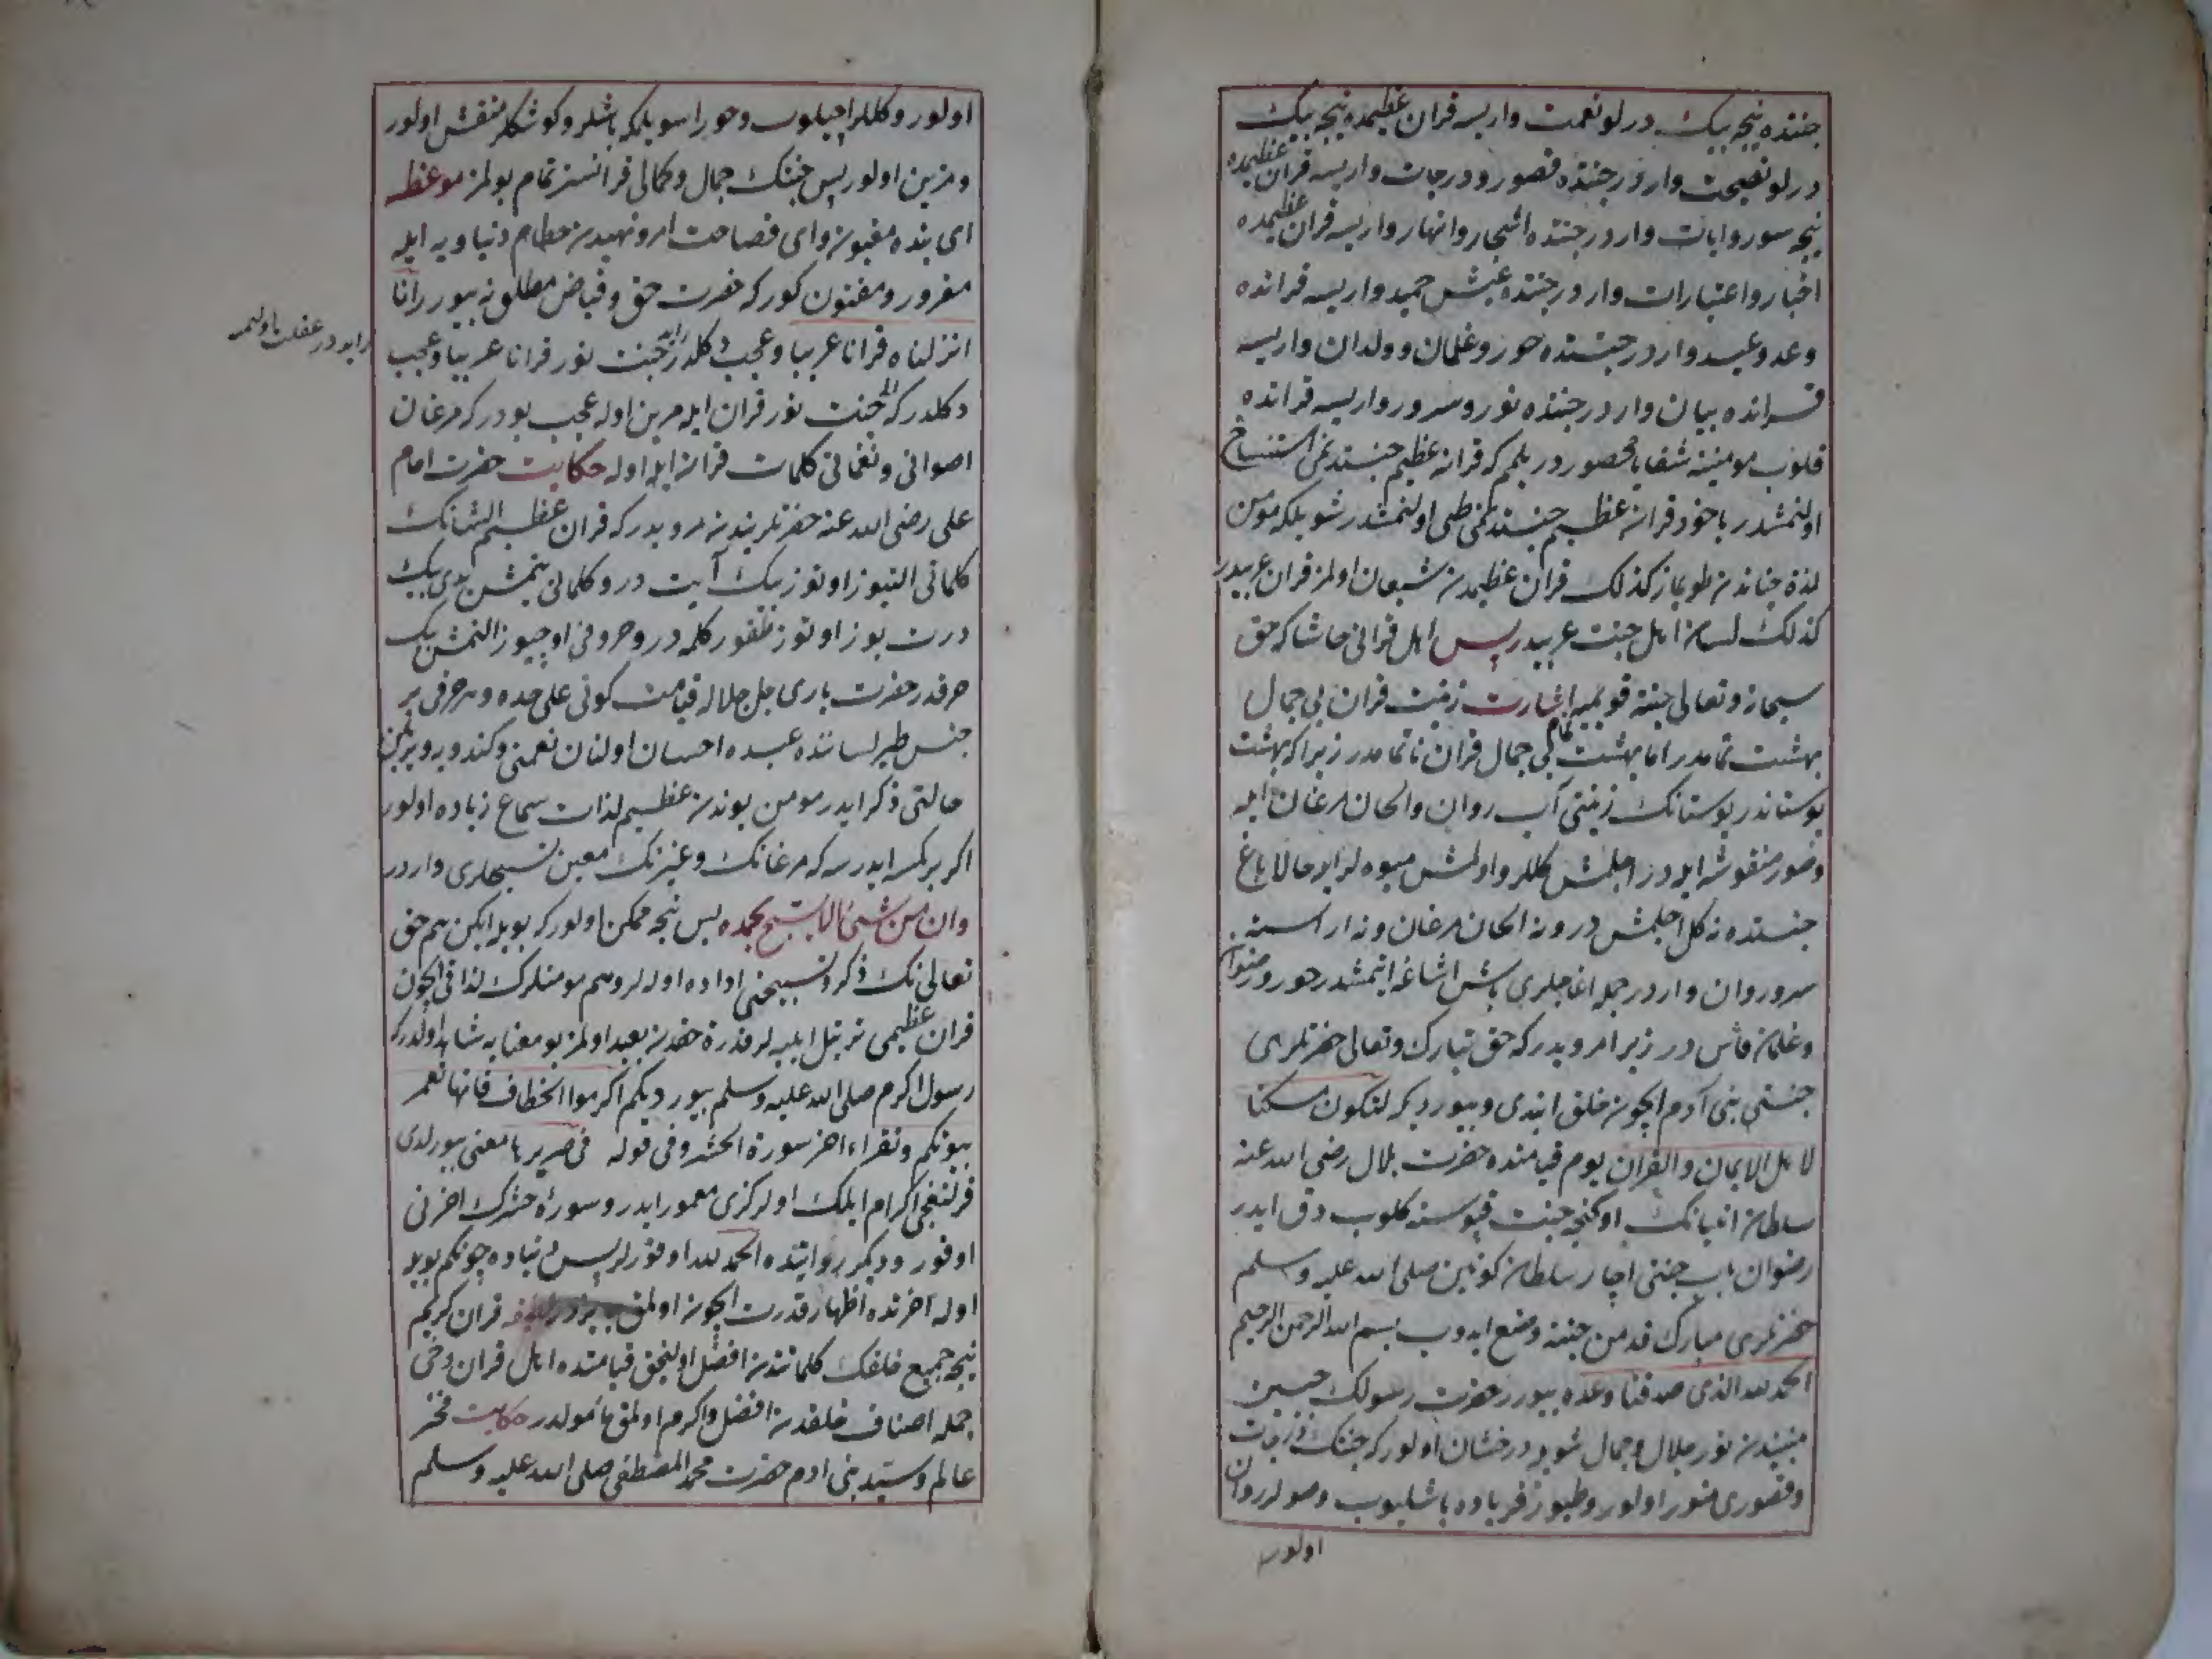 جننده نیجه بیك درلو نعمت واریسه قران عظیمده نیجه بیك
درلو نصیحت واردر جننده قصور ودرجات واریسه قران عظیمده
نیجه سور وایات واردر جننده اشجار وانهار واریسه قران عظیمده
اخبار واعتبارات واردر جننده عیش حمید واریسه قرانده
وعد وعید واردر جننده حور وغلمان وولدان واریسه
قرانده بیان واردر جننده نور وسرور واریسه قرانده
قلوب مومنینه شفا یا محصور در بلم که قران عظیم جنندنمی استنساخ
اولنمشدر یاخود قران عظیم جنندنمی طی اولنمشدر شویلکه مومن
لذة جناندن طویماز كذلك قران عظیمدن شبعان اولمز قران عربیدر
كذلك لسان اهل جنت عربیدر پس اهل قرانی حاشا که حق
سبحانه وتعالی جنته قویمیه اشارت زینت قران بی جمال
بهشت تمامدر اما بهشت بی جمال قران ناتمامدر زیرا که بهشت
بوستاندر بوستانك زینتی آب روان والحان مرغان ایله
وصور منقوشه ایله در اچلمش كللر واولمش میوه لر ایله حالا باغ
جننده نه كل اچلمش در ونه الحان مرغان ونه اراسته
سرو روان واردر جمله اغاجلری باشن اشاغه ایتمشدر حور ورضوان
وغلمان در زیر امرویدر که حق تبارك وتعالی حضرتلری
جنتی بنی آدم ایچون خلق ایتدی وبیوردیکه لتکون مسکنا
لاهل الایمان والقران یوم قیامتده حضرت بلال رضی الله عنه
سلطان انبیانك اوکنجه جنت قپوسنه کلوب دق ایدر
رضوان باب جنتی اچار سلطان کونین صلی الله علیه وسلم
حضرتلری مبارك قدمن جنته وضع ایدوب بسم الله الرحمن الرحیم
الحمد لله الذی صدقنا وعده بیورر حضرت رسولك جبین
مبینندن نور جلال وجمال شویله درخشان اولور که جنتك درجات
وقصوری منور اولور وطیور فریاده باشلیوب وصولر روان
اولور
اولور وكللر اچیلوب وحورا سویلمکه باشلر وکوشکلر منقش اولور
ومزین اولور پس جنتك جمال وکمالی قرانسز تمام بولمز موعظه
ای بنده مغبون وای فصاحت امر ونهیدن حطام دنیاویه ایله
مغرور ومفتون کور که حضرت حق وفیاض مطلق نه بیورر انا
انزلناه قرانا عربیا وعجب دکلدر جنت نور قرانا عربیا وعجب
دکلدر که جنت نور قران ایله مزین اوله عجب بودر که مرغان
اصواتی ونغماتی کلمات قران ایله اوله حکایت حضرت امام
علی رضی الله عنه حضرتلرندن مرویدر که قران عظیم الشانك
کلماتی التیوز اوتوز بیك آیت در وکلماتی یتمش یدی بیك
درت یوز اوتوز طقوز کلمه در وحروفی اوچیوز التمش بیك
حرفدر حضرت باری جل جلاله قیامت کونی علی حده وهر حرفی بر
جنس طیر لساننده عبده احسان اولنان نعمتی وکندویه ویریلن
حالتی ذکر ایدر مومن بوندن عظیم لذات سماع زیاده اولور
اکر برکسه ایدرسه که مرغانك وغیرنك معین تسبیحلری واردر
وان من شیء الا یسبح بحمده پس نیجه ممکن اولور که بویله ایکن هم حق
تعالی نك ذکر وتسبیحنی اداده اوله لر وهم مومنلرك لذاتی ایچون
قران عظیمی ترتیل ایلیه لر قدرة حقدن بعید اولمز بو معنایه شاهد اولدرکه
رسول اکرم صلی الله علیه وسلم بیوردیکم اکرموا الخطاف فانها تعمر
بیوتکم وتقراء اخر سورة الحشر وفی قوله یا معنی بیورلدی
قرلنغجی اکرام ایلك اولر کزی معمور ایدر وسوره حشرك اخرنی
اوقور ودیکر روایتده الحمد لله اوقورلر پس دنیاده چونکم بویله
اوله اخرتده اظهار قدرت ایچون اولمق قران کریم
نیجه جمیع خلقك کلماتندن افضل اولنجق قیامتده اهل قران دخی
جمله اصناف خلقدن افضل واکرم اولمق مأمولدر حکایت فخر
عالم وسید بنی ادم حضرت محمد المصطفی صلی الله علیه وسلم